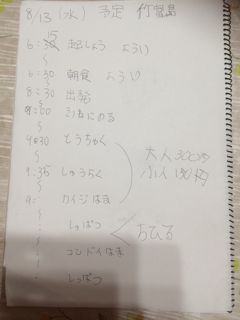 8/13(水) 予定 竹富島
15
6:30 起しょう ようい
〜
6:30 朝食 ようい
〜
8:30 出発
〜
9:00 ふねにのる
〜
9:30 とうちゃく
〜
9:35 しゅうらく
〜
9: カイジはま
〜
しゅぱつ
コンドイはま
しゅっぱつ
大人300円
小人150円
おひる